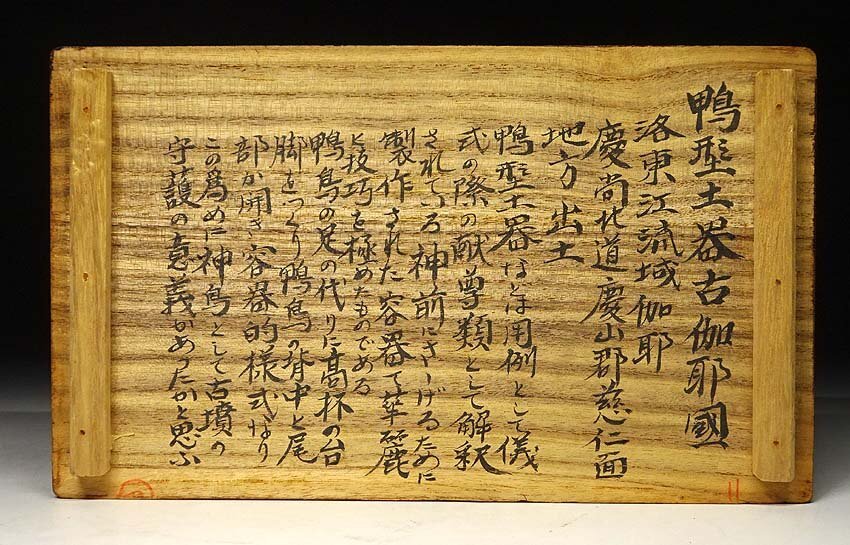 鴨型土器古伽耶國
洛東江流域伽耶
慶尚北道慶山郡慈仁面
地方出土
鴨型土器などは用例として儀
式の際の献尊類として解釈
されている神前にさゝげるために
製作された容器で華麗
と技巧を極めたものである
鴨鳥の足の代りに高杯の台
脚をつくり鴨鳥の背中と尾
部が開き容器的様式なり
この為めに神鳥として古墳の
守護の意義があったかと思ふ